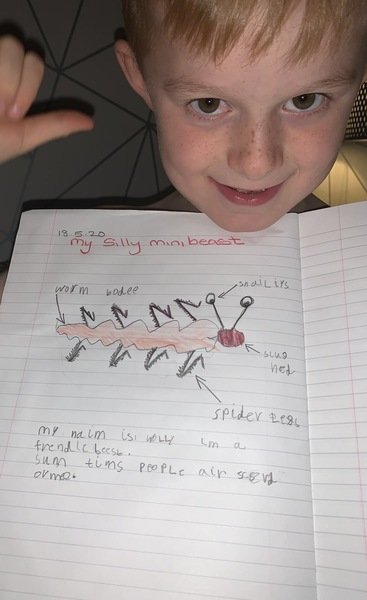 18.5.20
my silly minibeast
worm bodee
snail iys
slug
hed
spider legs
my naim is wolly im a
frendle beest.
sum tims people air scerd
orme.